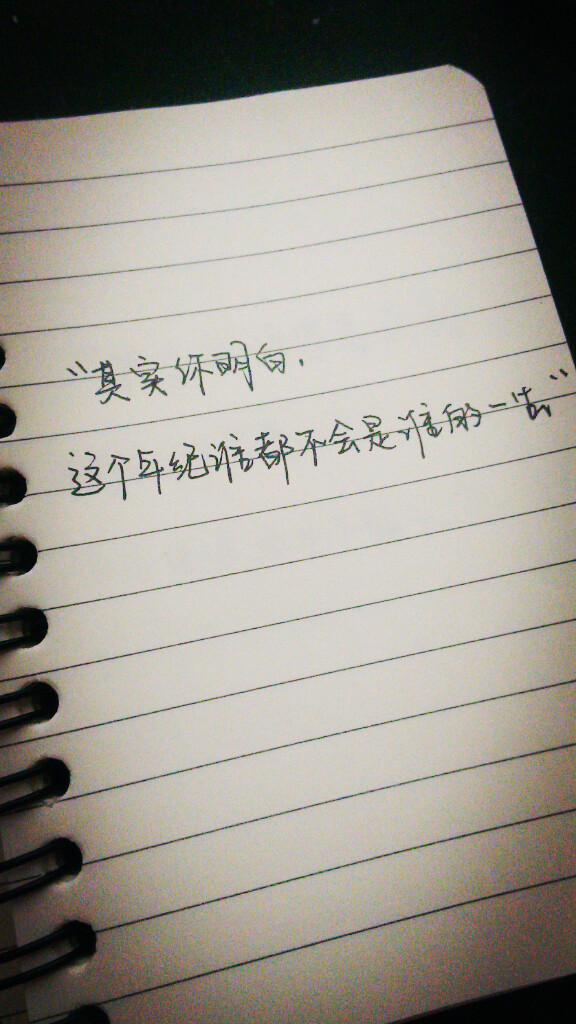 “其实你明白.
这个年纪谁都不会是谁的一生”